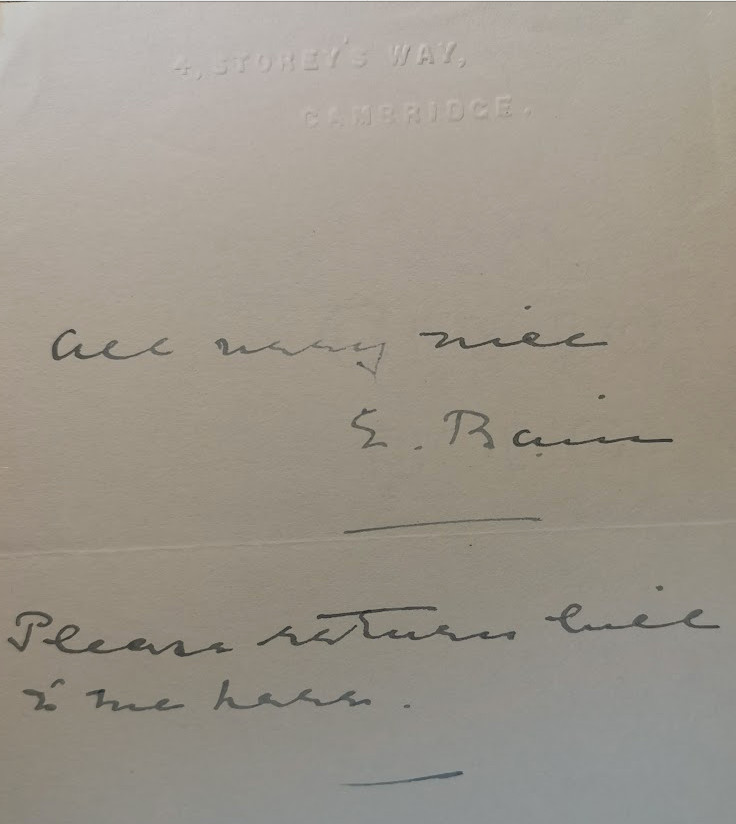 4, STOREY'S WAY,
CAMBRIDGE.
all very nice
E. Bain
Please return bill
to me here.